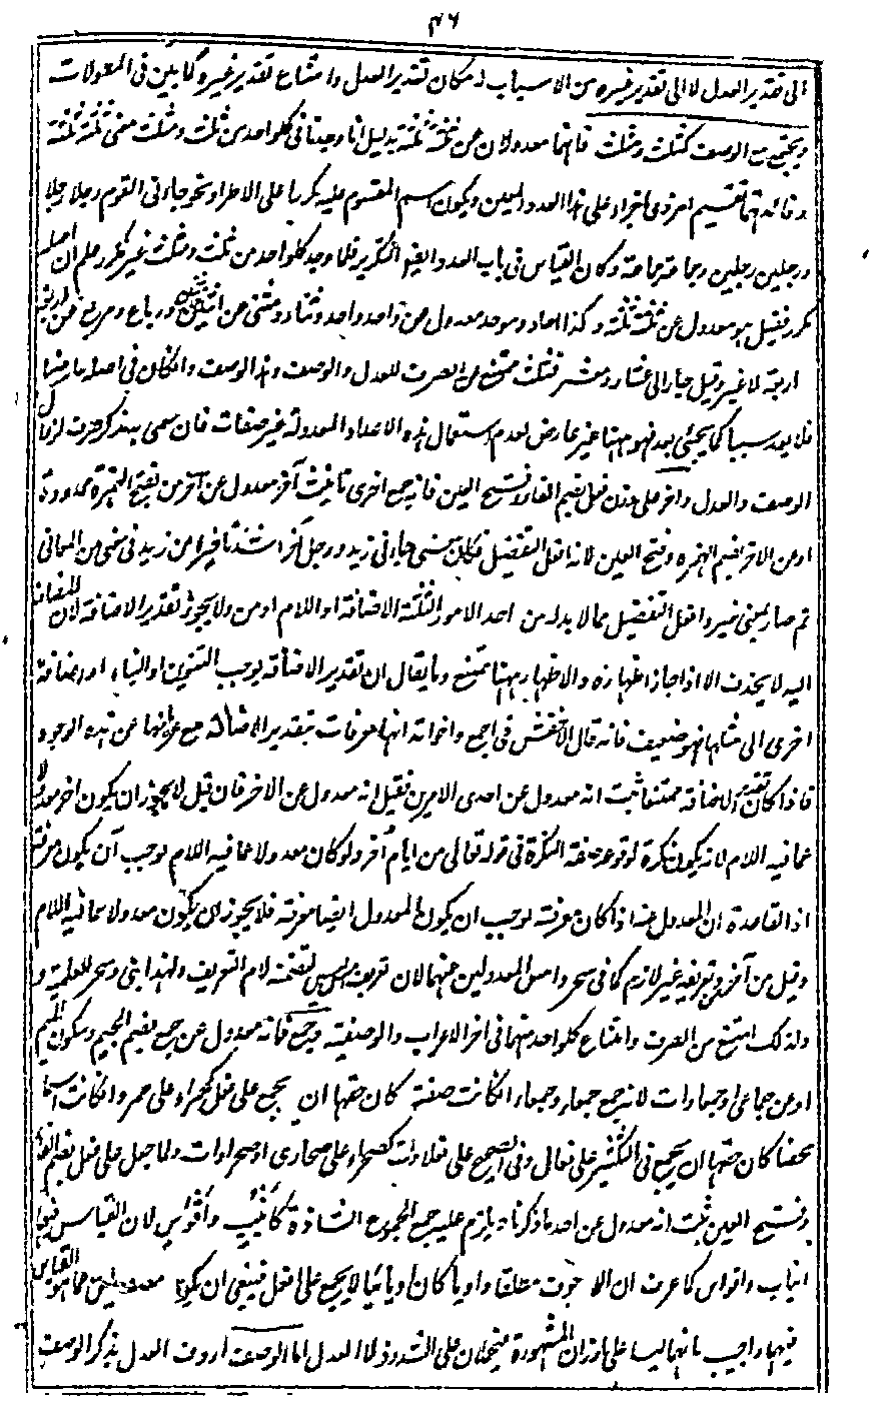 ٤٦
الى تقدير العدل لا الى تقدير غيره من الاسباب لمكان تقدير العدل وامتناع تقدير غيره كما بين فى المعدولات
ويجتمع مع الوصف كثلث ومثلث فانهما معدولان عن ثلثة ثلثة بدليل انا وجدنا فى كلواحد من ثلث ومثلث معنى ثلثة ثلثة
وفائدتهما تقسيم امر ذى اجزاء على هذا العدد المعين ويكون اسم المقسوم عليه مكررا على الاطراد نحو جاءنى القوم رجلا رجلا
ورجلين رجلين وجماعة جماعة وكان القياس فى باب العدد ايضا التكرير فلما وجد كلواحد من ثلث ومثلث غير مكرر علم ان اصله
مكرر فقيل هو معدول عن ثلثة ثلثة وكذا احاد وموحد معدول عن واحد واحد وثناء ومثنى عن اثنين اثنين ورباع ومربع عن اربعة
اربعة لا غير وقيل جاء الى عشار ومعشر فثلث ممتنع من الصرف للعدل والوصف وهذا الوصف وان كان فى اصله عارضا
فلا يعد سببا كما يجيئ بعد فهو ههنا غير عارض لعدم استعمال هذه الاعداد المعدولة غير صفات فان سمى بمذكر صرف لزوال
الوصف والعدل واخر على وزن فعل بضم الفاء وفتح العين فانه جمع اخرى تانيث آخر معدول عن آخر من بفتح الهمزة ممدودة
او عن الاخر بضم الهمزة وفتح العين لانه افعل التفضيل فكان معنى جاءنى زيد ورجل آخر اشد تأخيرا من زيد فى معنى من المعانى
ثم صار بمعنى غير وافعل التفضيل مما لا بد له من احد الامور الثلثة الاضافة او اللام او من ولا يجوز تقدير الاضافة لان المضاف
اليه لا يحذف الا اذا جاز اظهاره والاظهار ههنا ممتنع وما يقال ان تقدير الاضافة يوجب التنوين او البناء او اضافة
اخرى الى مثلها فهو ضعيف فانه قال الاخفش فى اجمع واخواته انها معرفات بتقدير الاضافة مع عرائها عن هذه الوجوه
فاذا كان تقدير الاضافة ممتنعا ثبت انه معدول عن احدى الامرين فقيل انه معدول عن الاخر فان قيل لا يجوز ان يكون اخر معدولا
عما فيه اللام لانه يكون نكرة لوقوعه صفة النكرة فى قوله تعالى من ايام أخر ولو كان معدولا عما فيه اللام لوجب ان يكون معرفة
اذ القاعدة ان المعدول عنه اذا كان معرفة لوجب ان يكون المعدول ايضا معرفة فلا يجوز ان يكون معدولا عما فيه اللام
وقيل من آخر وتعريفه غير لازم كما فى سحر وامس المعدولين عنهما لان تعريف امس لتضمنه لام التعريف ولهذا بنى وسحر للعلمية و
ولذلك امتنع من الصرف وامتناع كلواحد منهما فى اخر الاعراب والوصفية وجمع فانه معدول عن جمع بضم الجيم وسكون الميم
او عن جماعى او جمعاوات لانه جمع جمعاء وجمعاء ان كانت صفة كان حقها ان يجمع على فعل كحمراء على حمر وان كانت اسما
محضا كان حقها ان يجمع فى التكثير على فعالى وفى التصحيح على فعلاوات كصحراء على صحارى او صحراوات ولما جعل على فعل بضم الفاء
وفتح العين ثبت انه معدول عن احد ما ذكرنا ولا يلزم عليه جمع الجموع الشاذة كأنيُب وأقوُس لان القياس فيهما
انياب واقواس كما عرفت ان الاجوف مطلقا واويا كان او يائيا لا يجمع على افعل فينبغى ان يكونا معدولين عما هو القياس
فيهما واجيب بانهما ليسا على اوزان المشهورة فيحملان على الشذوذ لا العدل اما الوصف اردف العدل بذكر الوصف